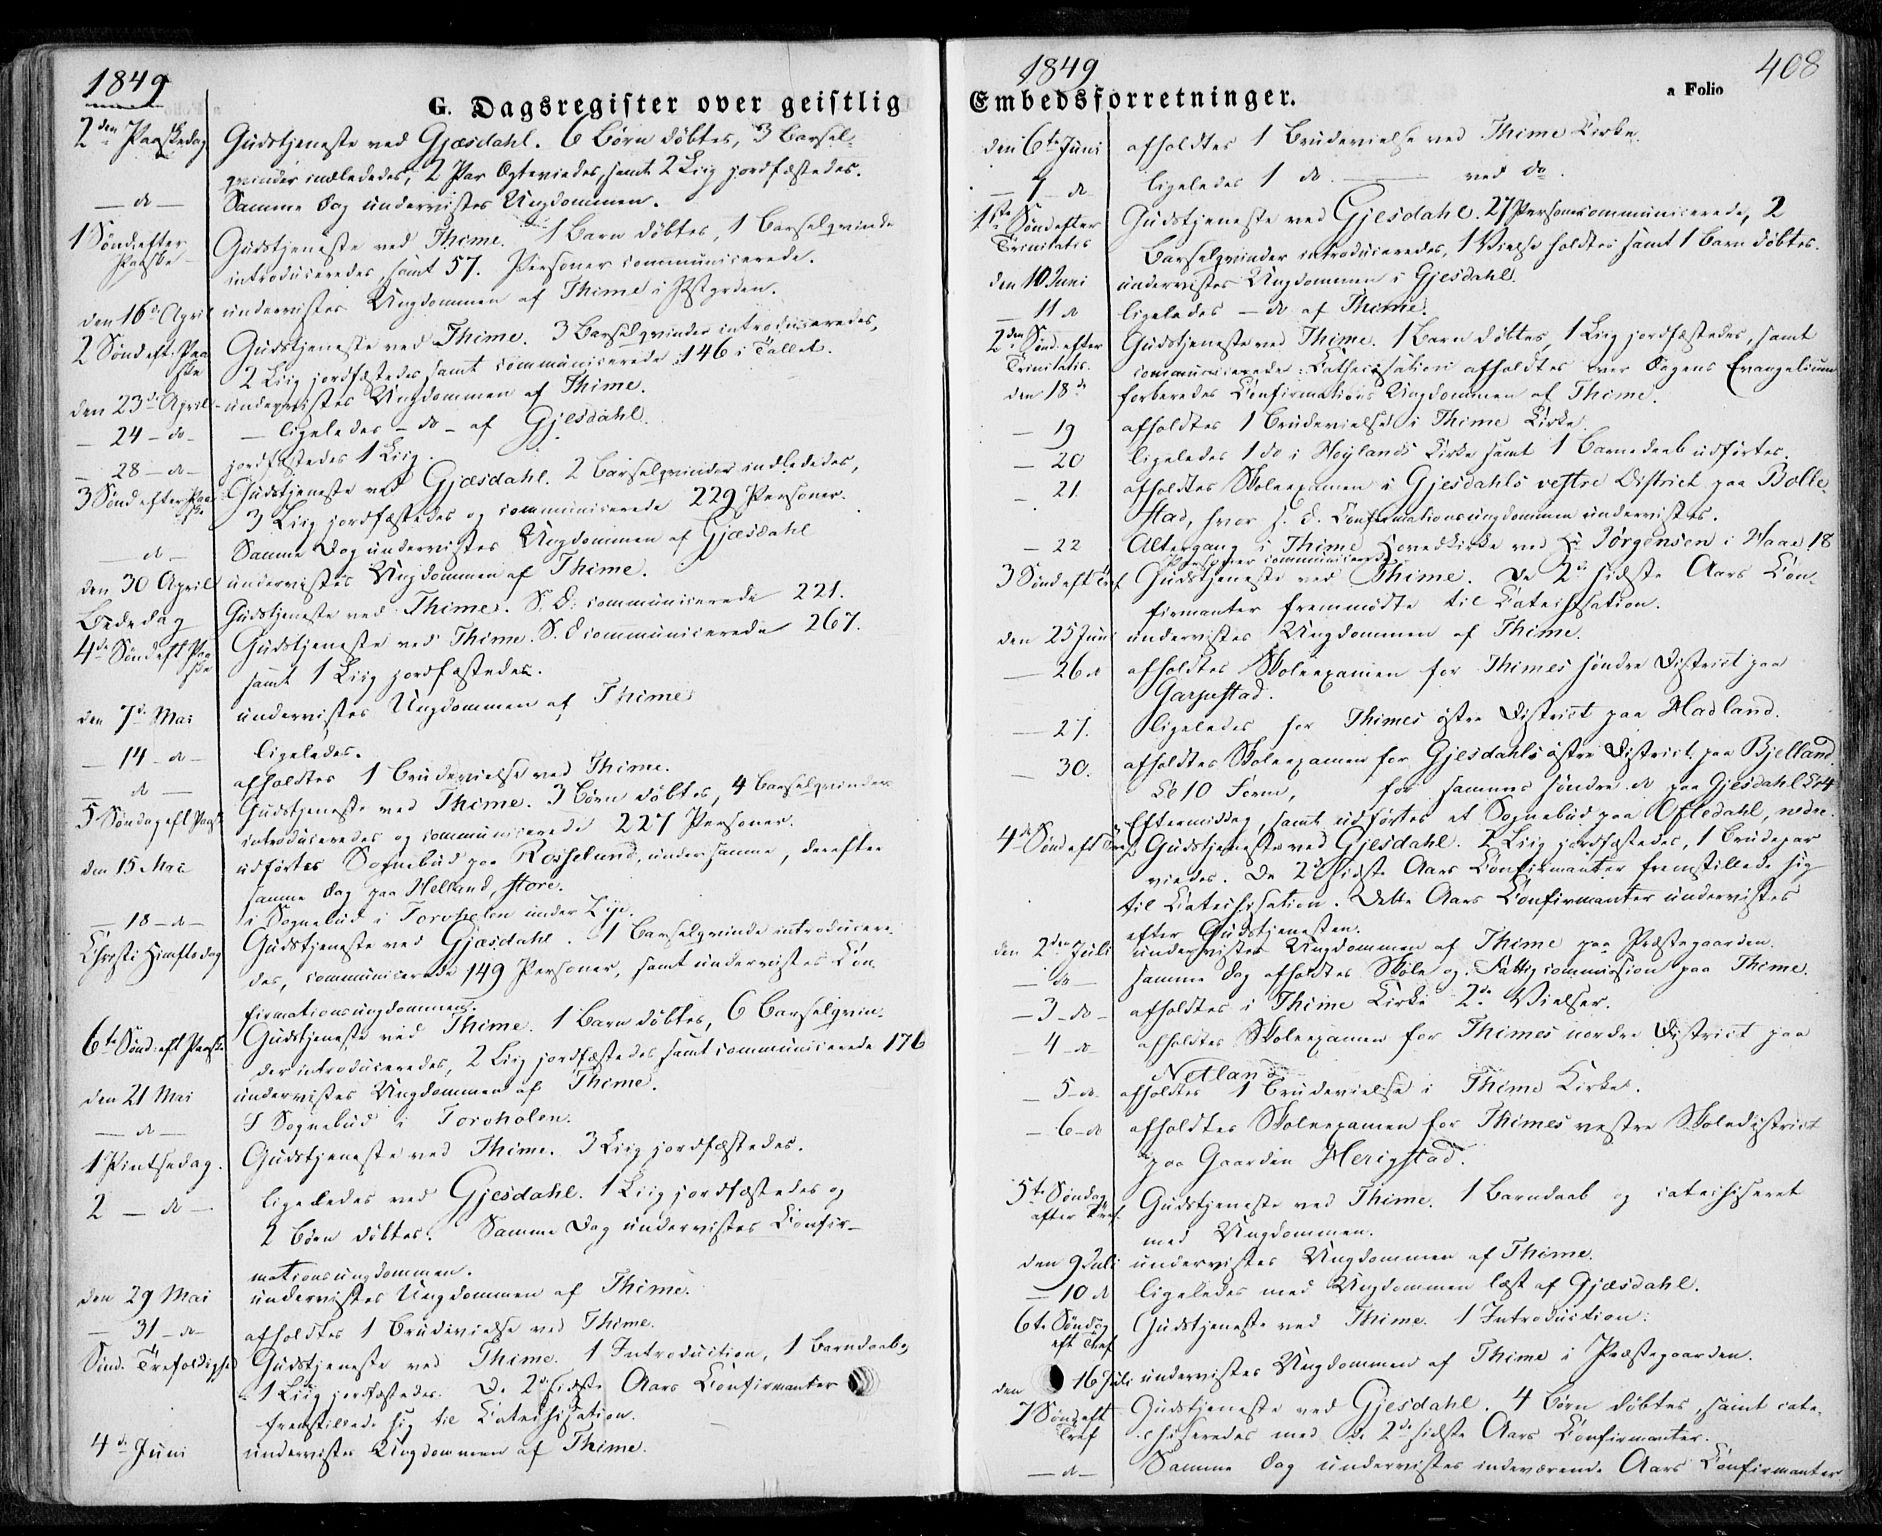 1849
G. Dagsregister over geistlig
2den Paaskedag Gudstjeneste ved Gjæsdahl. 6 Børn døbtes, 3 Barsel-
qvinder indlededes, 2 Par Ægteviedes, samt 2 Liig jordfæstedes.
— do — Samme Dag undervistes Ungdommen.
1 Sønd: efter Gudstjeneste ved Thime. 1 Barn døbtes, 1 Barselqvinde
Paaske introduceredes, samt 57. Personer communicerede.
den 16de April undervistes Ungdommen af Thime i
2 Sønd eft: Paa Gudstjeneste ved Thime. 3 Barselqvinder introduceredes,
ske 2 Liig jordfæstedes samt communicerede 146 i Tallet.
den 23de April undervistes Ungdommen af Thime.
— 24 — do — — ligeledes — do — af Gjesdahl.
— 28 — do — jordfæstedes 1 Liig.
3 Sønd efter Paa Gudstjeneste ved Gjæsdahl. 2 Barselqvinder indlededes,
ske 3 Liig jordfæstedes og communicerede 229 Personer.
— do — Samme Dag undervistes Ungdommen af Gjæsdahl
den 30 April undervistes Ungdommen af Thime.
Bededag Gudstjeneste ved Thime. S. D. communicerede 221.
4de Sønd eft Paa Gudstjeneste ved Thime. S. D communicerede 267.
ske samt 1 Liig jordfæstedes.
den 7de Mai undervistes Ungdommen af Thime
— 14 — do — ligeledes.
— do — afholdtes 1 Brudevielse ved Thime.
5 Søndag eft Paask Gudstjeneste ved Thime. 3 Børn døbtes, 4 Barselqvinder
introduceredes og communicerede 227 Personer.
den 15 Mai udførtes Sognebud paa Rosselund, under samme, derefter
samme Dag paa Helland, store.
— 18 — do — i Sognebud i Torvholen under Lye.
Christi Himfts dag Gudstjeneste ved Gjæsdahl. 1 Barselqvinde introducere-
des, communicerede 149 Personer, samt undervistes Con-
firmationsungdommen.
6te Sønd: eft Paaske Gudstjeneste ved Thime. 1 Barn døbtes, 6 Barselqvin-
der introduceredes, 2 Liig jordfæstedes samt communicerede 176
den 21 Mai undervistes Ungdommen af Thime.
— do — I Sognebud i Torvholen.
1 Pintsedag. Gudstjeneste ved Thime. 3 Liig jordfæstedes.
2 — do — ligeledes ved Gjesdahl. 1 Liig jordfæstedes og
2 Børn døbtes. Samme Dag undervistes Confir-
mationsungdommen.
den 29 Mai undervistes Ungdommen af Thime.
— 31 — do — afholdtes 1 Brudevielse ved Thime.
Sønd. Trefoldigh Gudstjeneste ved Thime. 1 Introduction, 1 Barndaab,
1 Liig jordfæstedes. De 2de sidste Aars Confirmanter
fremstillede sig til Catechisation.
4de Juni undervistes Ungdommen af Thime.
1849
408
Embedsforretninger.
a Folio
den 6te Juni afholdtes 1 Brudevielse ved Thime Kirke.
— 7 — do ligeledes 1 do — ved do.
1ste Sønd efter Gudstjeneste ved Gjesdahl. 27 Personer communicerede, 2
Trinitatis Barselqvinder introduceredes, 1 Vielse holdtes samt 1 Barn døbtes.
den 10 Juni undervistes Ungdommen i Gjesdahl.
— 11 do ligeledes — do af Thime.
2den Sønd. efter Gudstjeneste ved Thime. 1 Barn døbtes, 1 Liig jordfæstedes, samt
Trinitatis. communicerede: Catechisation afholdtes over Dagens Evangelium
den 18de forberedes Confirmations Ungdommen af Thime.
— 19 afholdtes 1 Brudevielse i Thime Kirke.
— 20 ligeledes 1 do i Høylands Kirke samt 1 Barnedaab udførtes.
— 21. afholdtes Skoleexamen i Gjesdahls vestre District paa Bolle-
stad, hvor s. d. Confirmationsungdommen undervistes.
— 22 Altergang i Thime Hovedkirke ved Hr Jørgensen i Haae. 18
Personer communicerede
3 Sønd eft Tref Gudstjeneste ved Thime. De 2de sidste Aars Con-
firmanter fremmødte til Catechisation.
den 25 Juni undervistes Ungdommen af Thime.
— 26 do afholdtes Skoleexamen for Thimes søndre District paa
Garpestad.
— 27. ligeledes for Thimes østre District paa Hadland.
— 30. afholdtes Skoleexamen for Gjesdahls østre District paa Bjelland
Kl 10 Form, for sammes søndre do paa Gjesdahl Kl 4
Eftermiddag, samt udførtes et Sognebud paa Ofledahl, nedre.
4de Sønd eft Tref Gudstjeneste ved Gjesdahl. 2 Liig jordfæstedes, 1 Brudepar
viedes. De 2de sidste Aars Confirmanter fremstillede sig
til Catechisation. Dette Aars Confirmanter undervistes
efter Gudstjenesten.
den 2den Juli undervistes Ungdommen af Thime paa Præstegaarden.
— do — samme Dag afholdtes Skole og Fattigcommission paa Thime.
— 3 — do — afholdtes i Thime Kirke 2de Vielser.
— 4 — do afholdtes Skoleexamen for Thimes nordre District paa
Netland
— 5 — do afholdtes 1 Brudevielse i Thime Kirke.
— 6 — do afholdtes Skoleexamen for Thimes vestre Skoledistrict
paa Gaarden Herigstad.
5te Søndag Gudstjeneste ved Thime. 1 Barndaab og catechiseret
efter Tref. med Ungdommen.
den 9 Juli undervistes Ungdommen af Thime.
— 10 do ligeledes med Ungdommen læst af Gjæsdahl.
6te Søndag Gudstjeneste ved Thime. 1 Introduction:
eft Tref
den 16 Juli undervistes Ungdommen af Thime i Præstegaarden.
7 Sønd eft Gudstjeneste ved Gjesdahl. 4 Børn døbtes, samt cate-
Tref chiseredes med de 2de sidste Aars Confirmanter.
— do — Samme Dag undervistes indeværende Aars Confirmanter